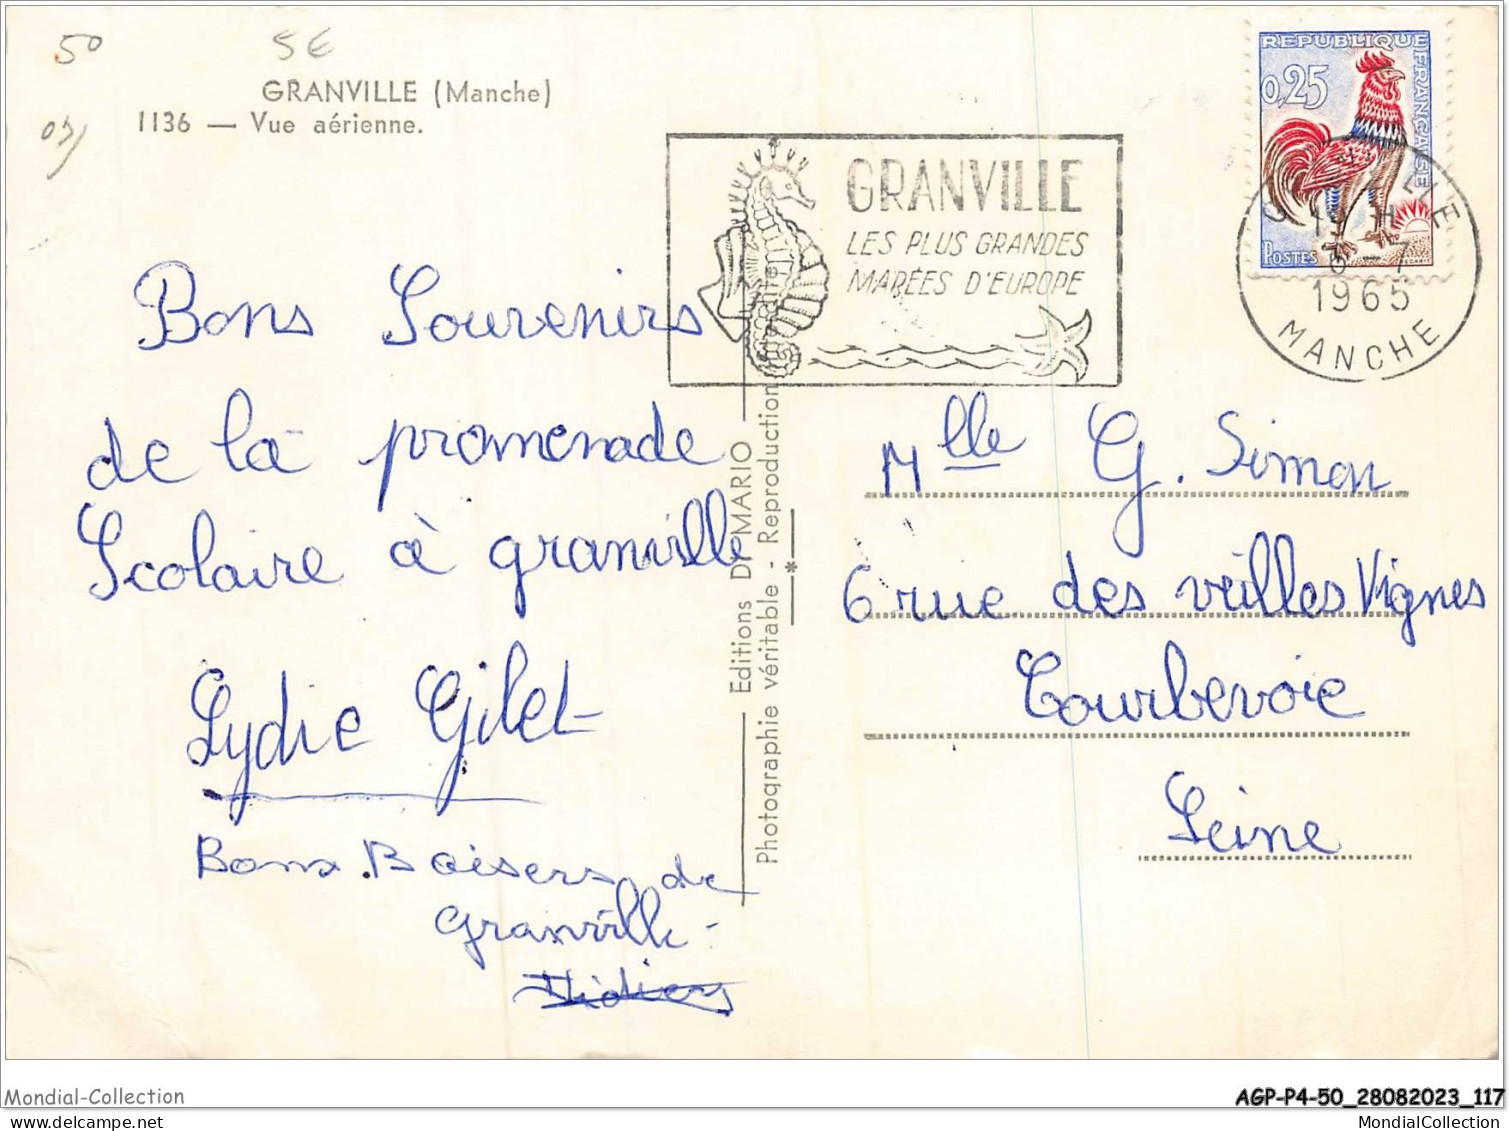 50
5€
GRANVILLE (Manche)
1136 — Vue aérienne.
GRANVILLE
LES PLUS GRANDES
MARÉES D'EUROPE
REPUBLIQUE FRANÇAISE
0,25
POSTES
19 H
-7
1965
MANCHE
Bons Souvenirs
de la promenade
Scolaire à granville
Lydie Gilet
Bons Baisers de
Granville -
Didier
Editions D MARIO
Photographie véritable - Reproduction
Mlle G. Simon
6 rue des veilles Vignes
Courbevoie
Seine
Mondial-Collection
AGP-P4-50_28082023_117
https://www.delcampe.net
MondialCollection